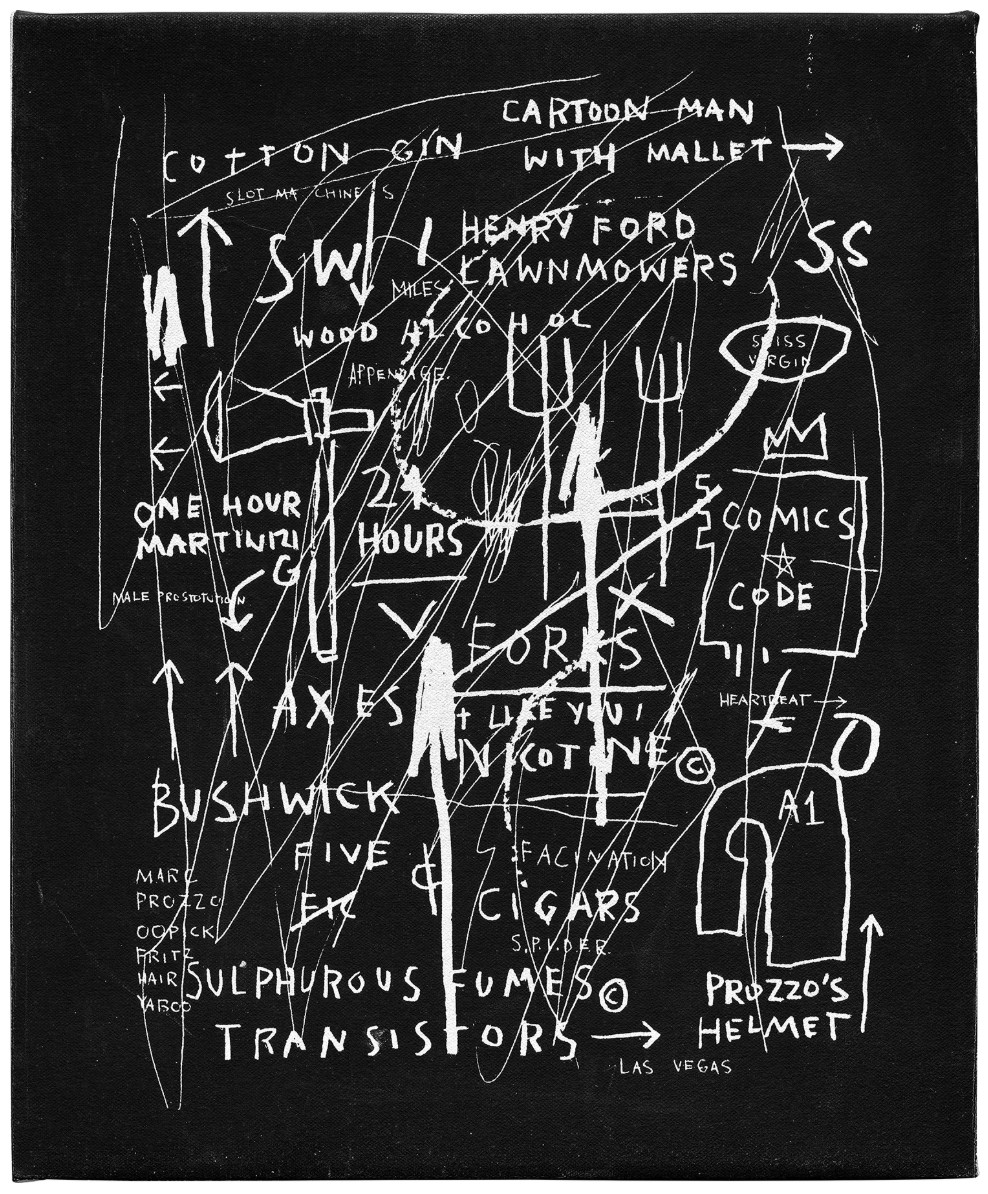 CARTOON MAN
WITH MALLET
COTTON GIN
SLOT MACHINES
SWI
SS
HENRY FORD
LAWNMOWERS
MILES
WOOD ALCOHOL
SWISS
VIRGIN
APPENDAGE.
24
HOURS
ONE HOUR
MARTINIZI
G
COMICS
CODE
MALE PROSTOTUTION
FORKS
AXES
HEARTBEAT
I LIKE YOU!
NICOTINE ©
BUSHWICK
A1
FIVE ¢
FACINATION
FIC
CIGARS
MARC
PROZZO
OOPICK
FRITZ
HAIR
YABOO
S.P.I.DER.
SULPHUROUS FUMES ©
PROZZO'S
HELMET
TRANSISTORS
LAS VEGAS